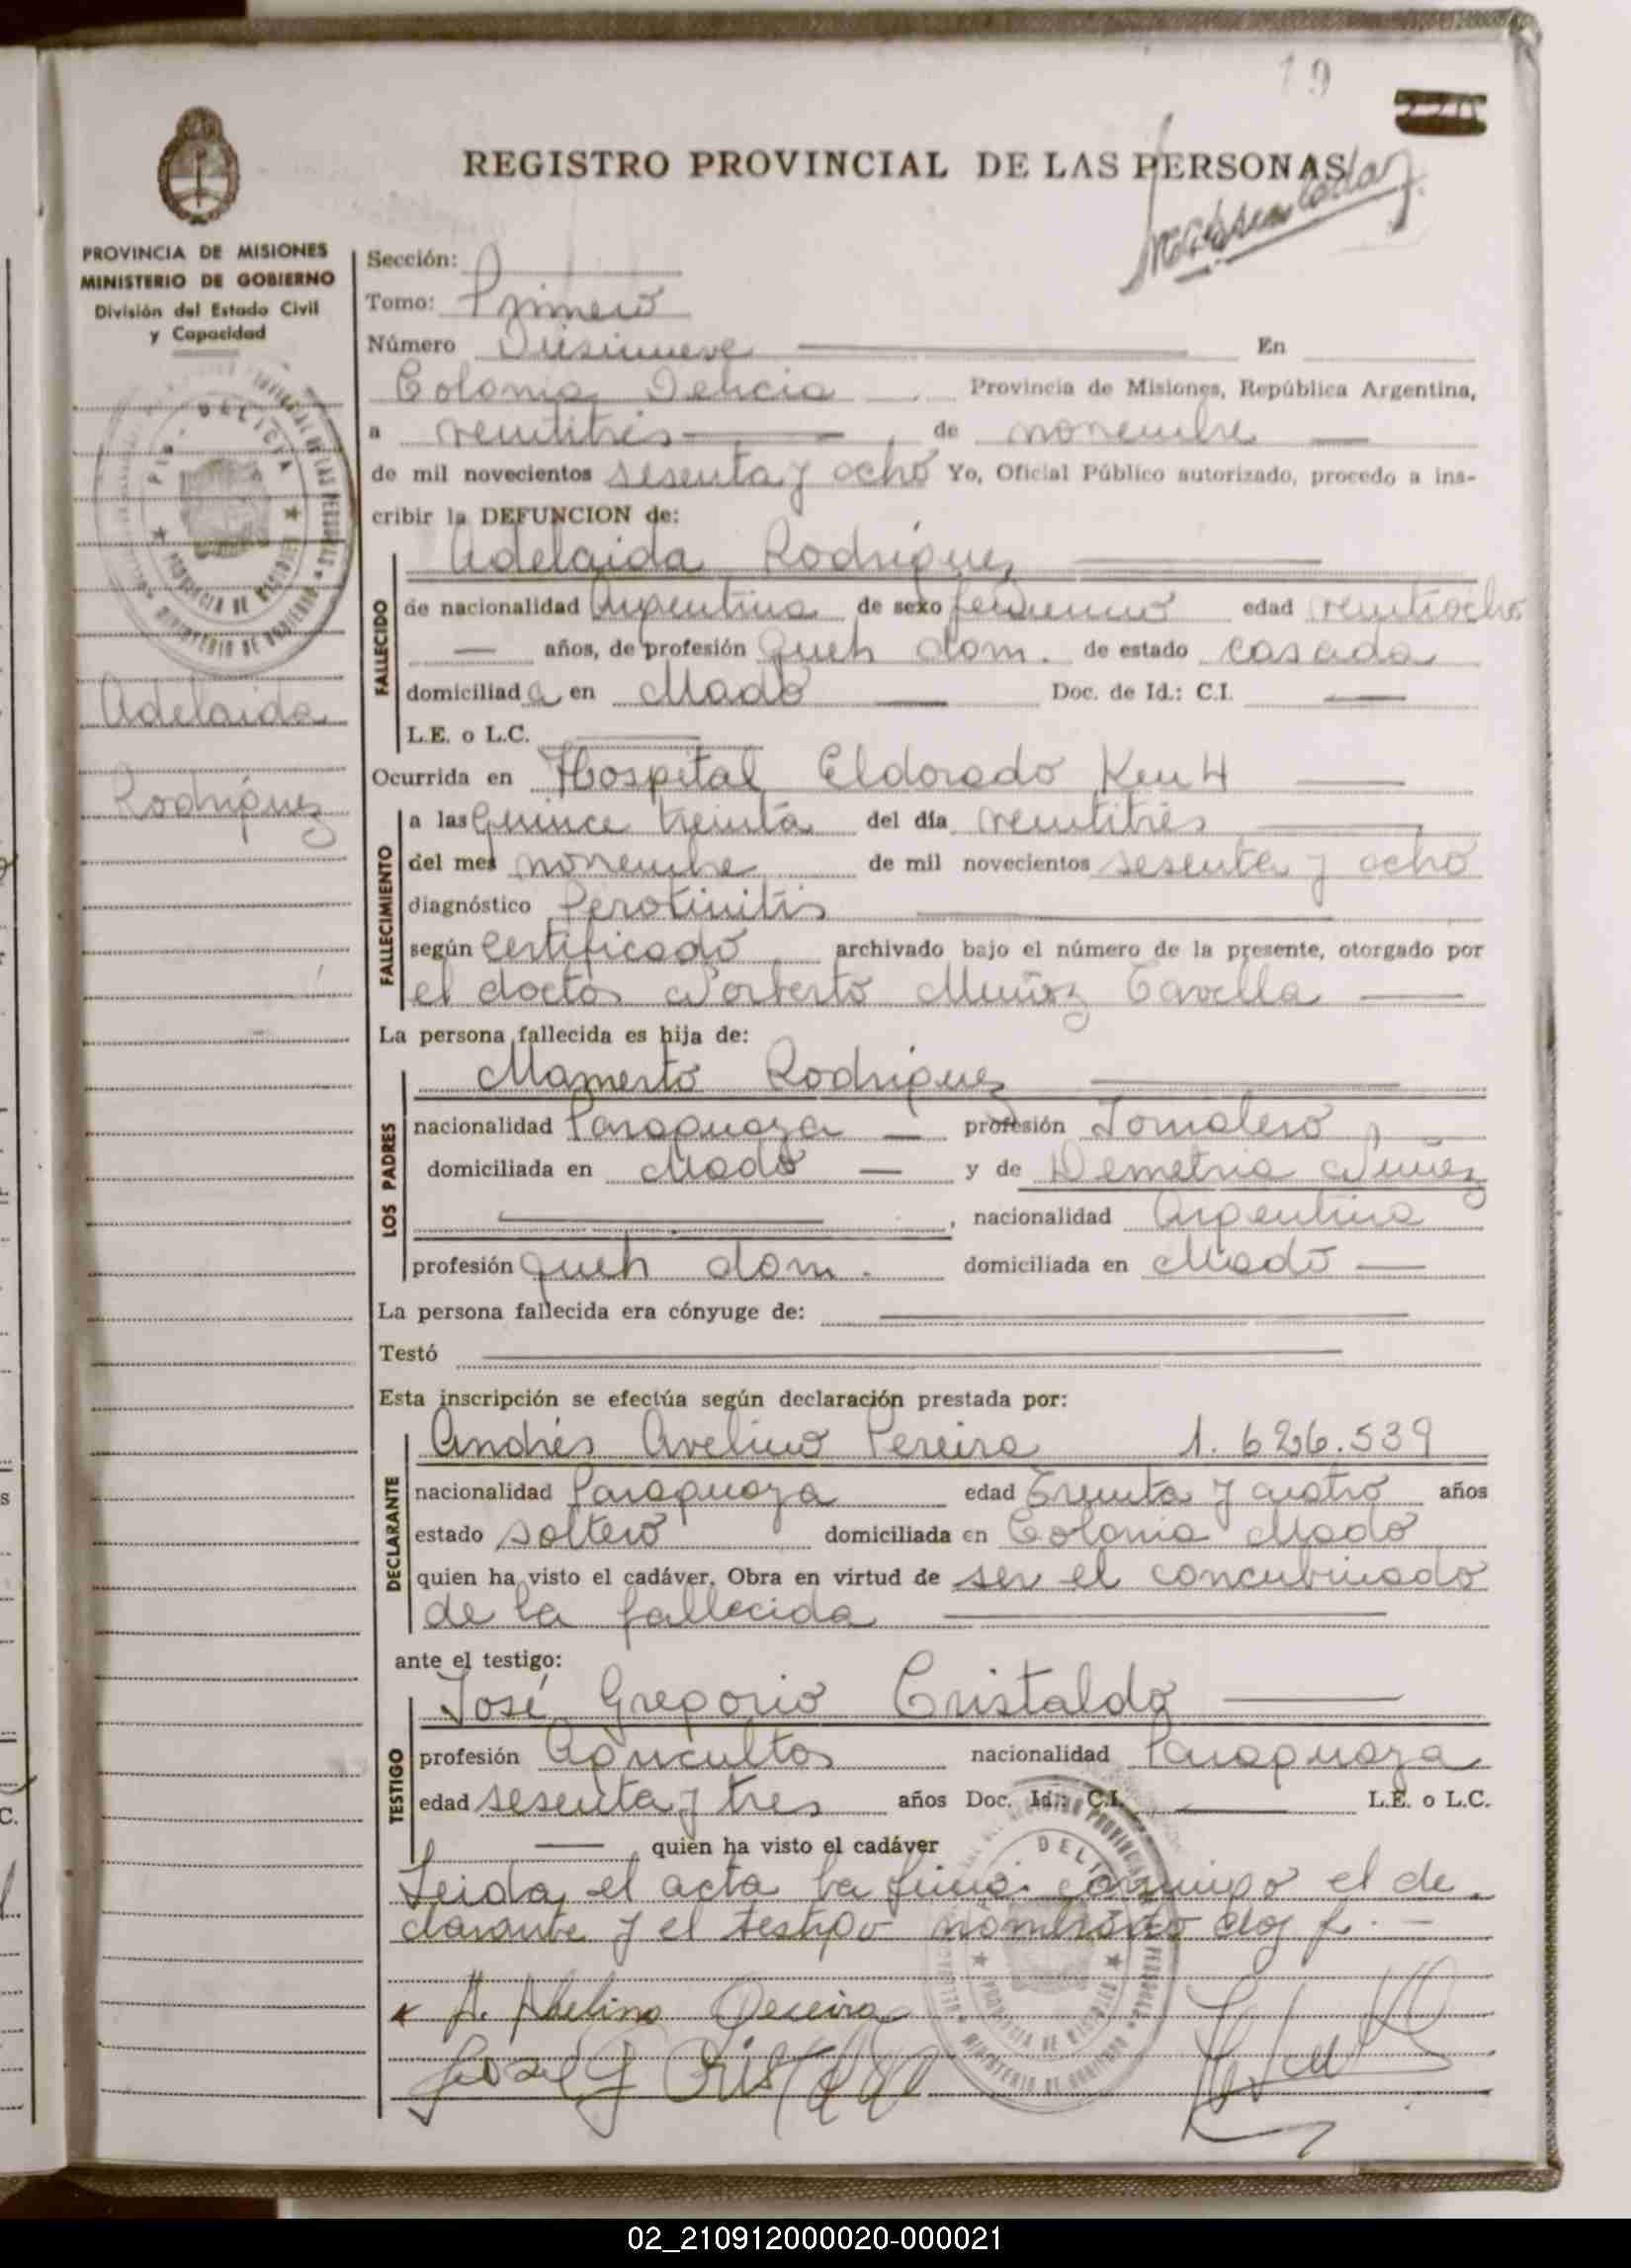 19
REGISTRO PROVINCIAL DE LAS PERSONAS
PROVINCIA DE MISIONES
MINISTERIO DE GOBIERNO
División del Estado Civil
y Capacidad
Adelaida
Rodríguez
Sección:
Tomo: Primero
Número Diesinueve En
Colonia Delicia Provincia de Misiones, República Argentina,
a veintitrés de noviembre
de mil novecientos sesenta y ocho Yo, Oficial Público autorizado, procedo a ins-
cribir la DEFUNCION de:
Adelaida Rodríguez
FALLECIDO
de nacionalidad Argentina de sexo femenino edad veintiocho
años, de profesión Queh dom. de estado casada
domiciliad a en Mado Doc. de Id.: C.I.
L.E. o L.C.
Ocurrida en Hospital Eldorado Km 4
FALLECIMIENTO
a las Quince treinta del día veintitrés
del mes noviembre de mil novecientos sesenta y ocho
diagnóstico Perotinitis
según Certificado archivado bajo el número de la presente, otorgado por
el doctor Norberto Muñoz Cavella
La persona fallecida es hija de:
LOS PADRES
Mamerto Rodríguez
nacionalidad Paraguaya profesión Jornalero
domiciliada en Mado y de Demetria Nuñez
, nacionalidad Argentina
profesión queh dom. domiciliada en Mado
La persona fallecida era cónyuge de:
Testó
Esta inscripción se efectúa según declaración prestada por:
DECLARANTE
Andrés Avelino Pereira 1.626.539
nacionalidad Paraguaya edad Treinta y cuatro años
estado soltero domiciliada en Colonia Mado
quien ha visto el cadáver. Obra en virtud de ser el concubinado
de la fallecida
ante el testigo:
TESTIGO
José Gregorio Cristaldo
profesión Agricultor nacionalidad Paraguaya
edad sesenta y tres años Doc. Id.: C.I. L.E. o L.C.
quien ha visto el cadáver
Leida el acta la firma conmigo el de
clarante y el testigo nombrado doy f.
A. Abelino Pereira
José G Cristaldo
02_210912000020-000021